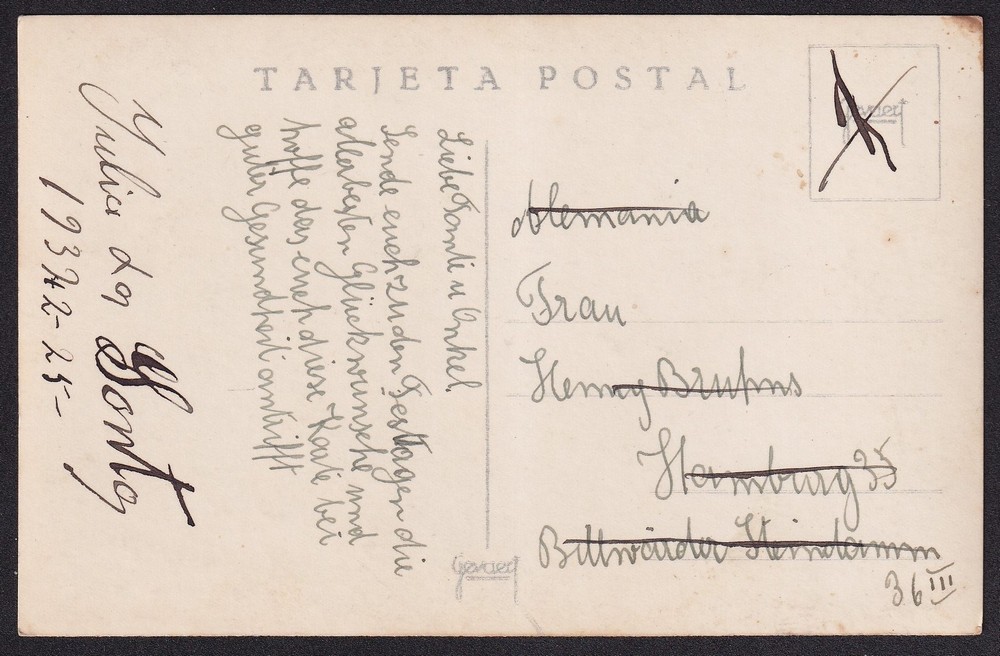 TARJETA POSTAL
Gevaert
Liebe Tante u Onkel.
Sende euch zu den Festtagen die
allerbesten Glückwunsche und
hoffe das euch diese Karte bei
guter Gesundheit antrifft
Alemania
Frau
Henny Bruhns
Hamburg 35
Billwärder Steindamm
36 III
Gevaert